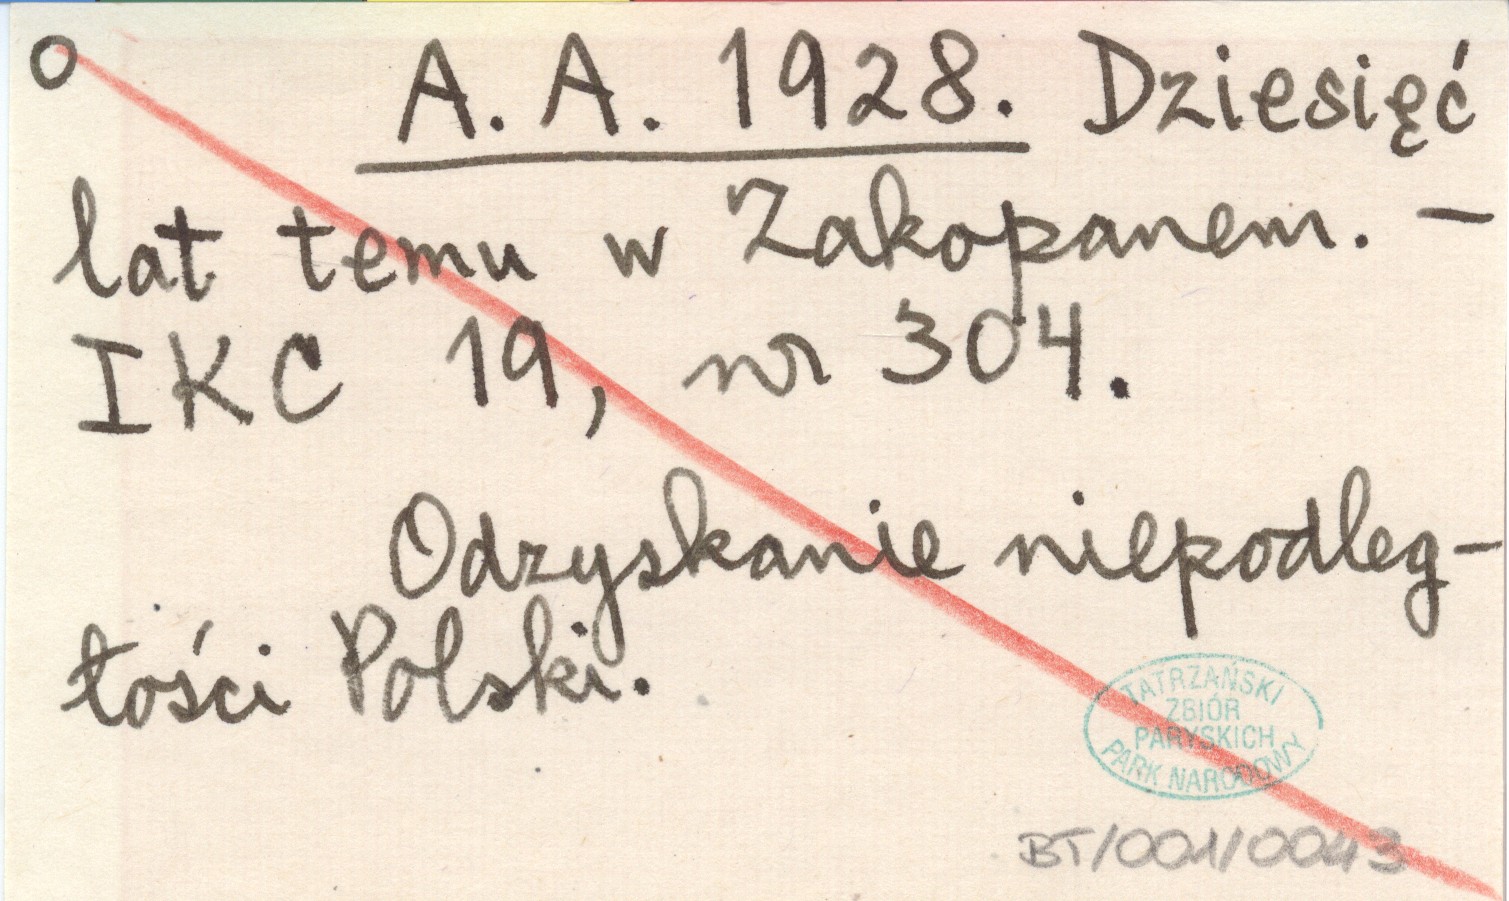 o A. A. 1928. Dziesięć
lat temu w Zakopanem. —
IKC 19, nr 304.
Odzyskanie niepodleg-
łości Polski.
TATRZAŃSKI
ZBIÓR
PARYSKICH
PARK NARODOWY
BT/001/0043